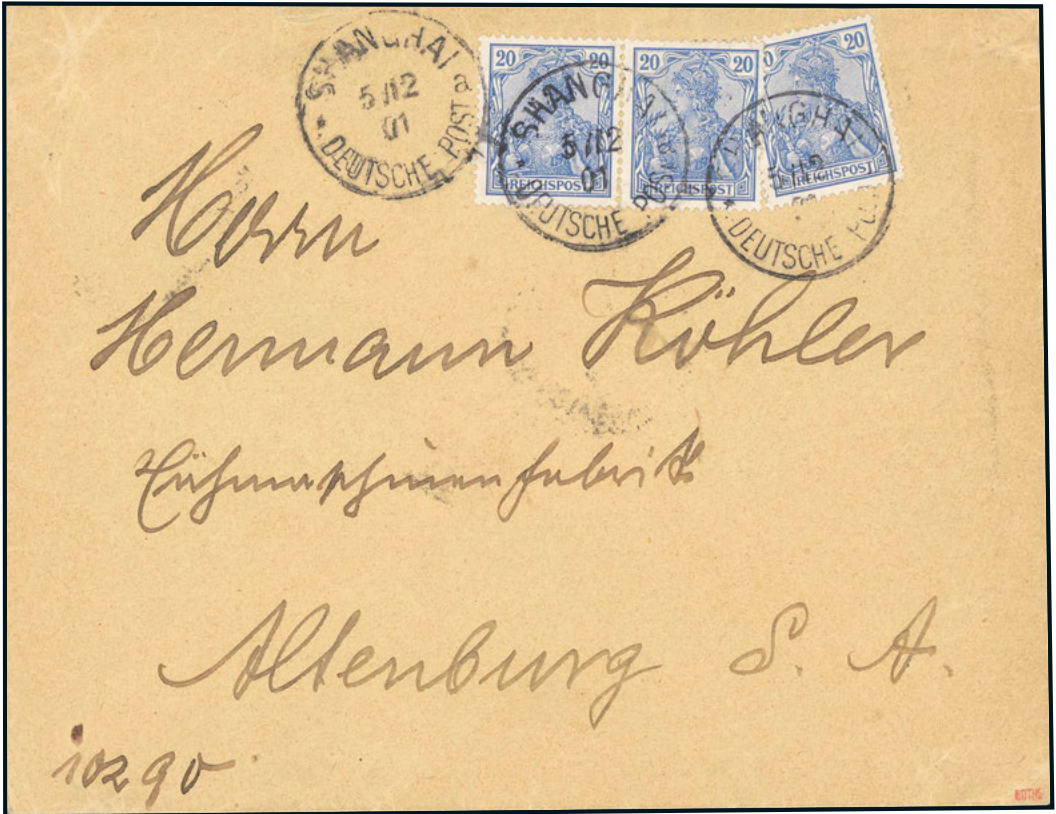 SHANGHAI a
5/12
01
* DEUTSCHE POST
20 20
REICHSPOST
SHANGHAI
5/12
01
* DEUTSCHE POST
20 20
REICHSPOST
20
REICHSPOST
5/12
* DEUTSCHE
Herrn
Hermann Köhler
Nähmaschinenfabrik
Altenburg S. A.
10290